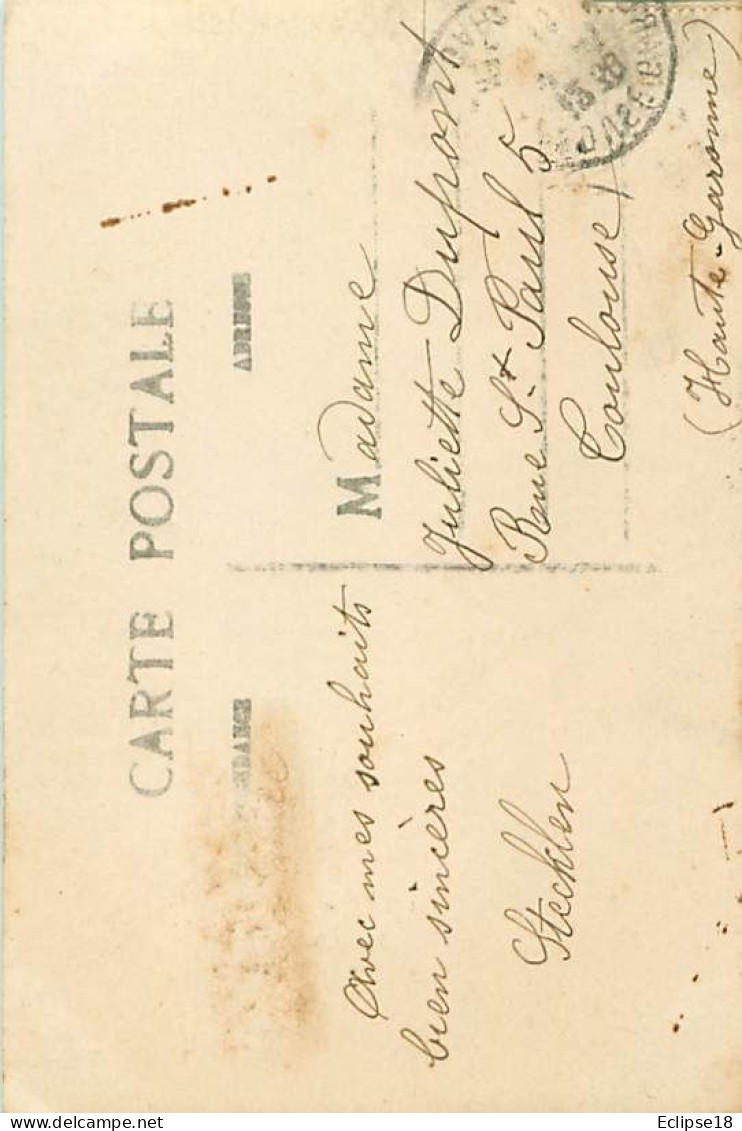 CARTE POSTALE
ADRESSE
Avec mes souhaits
bien sincères
Stecklen
Madame
Juliette Dupont
Rue St Paul 5
Toulouse
(Haute-Garonne)
delcampe.net
Eclipse18